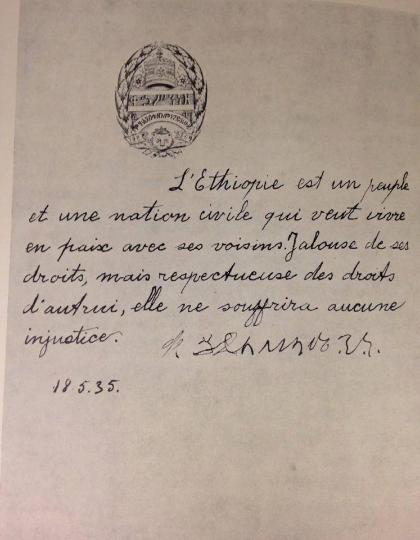 L'Ethiopie est un peuple
et une nation civile qui veut vivre
en paix avec ses voisins. Jalouse de ses
droits, mais respectueuse des droits
d'autrui, elle ne souffrira aucune
injustice.
18.5.35.